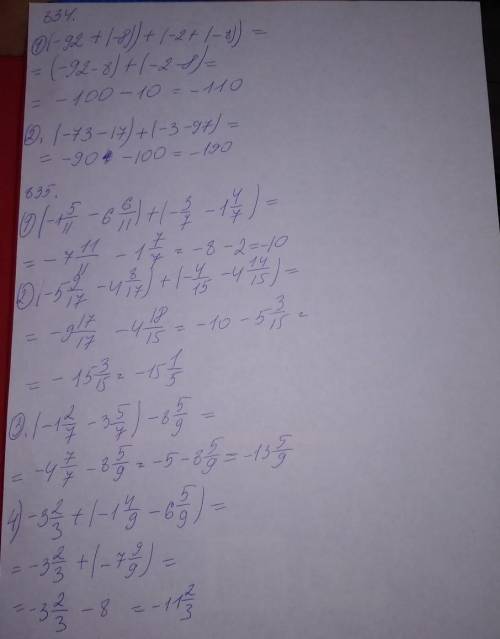 834.
1) (-92 + (-8)) + (-2 + (-8)) =
= (-92-8) + (-2-8) =
= -100 - 10 = -110
2). (-73-17) + (-3-97) =
= -90 - 100 = -190
835.
1) (-1 5/11 - 6 6/11) + (-3/7 - 1 4/7) =
= -7 11/11 - 1 7/7 = -8 - 2 = -10
2) (-5 9/17 - 4 8/17) + (-4/15 - 4 14/15) =
= -9 17/17 - 4 18/15 = -10 - 5 3/15 =
= -15 3/15 = -15 1/5
3). (-1 2/7 - 3 5/7) - 8 5/9 =
= -4 7/7 - 8 5/9 = -5 - 8 5/9 = -13 5/9
4) -3 2/3 + (-1 4/9 - 6 5/9) =
= -3 2/3 + (-7 9/9) =
= -3 2/3 - 8 = -11 2/3